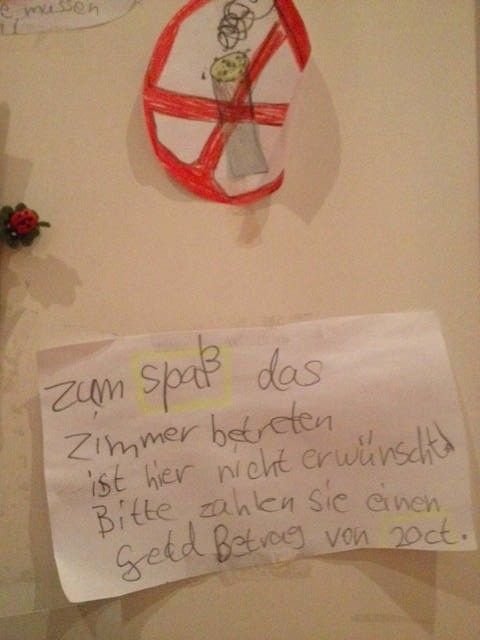 e müssen
zum spaß das
zimmer betreten
ist hier nicht erwünscht
Bitte zahlen sie einen
Geld Betrag von 20ct.